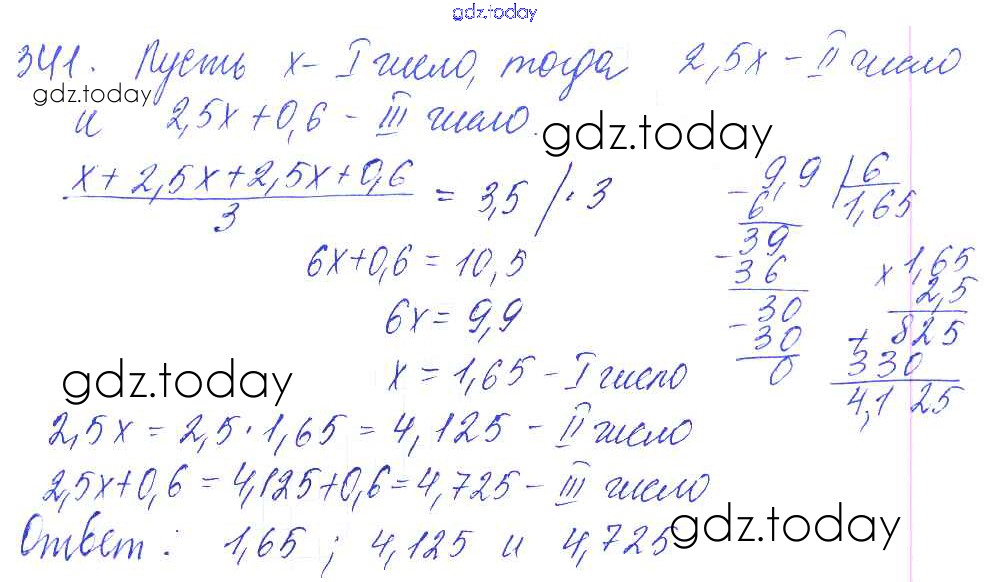 gdz.today
341. Пусть x - I число, тогда 2,5x - II число
gdz.today
и 2,5x + 0,6 - III число.
gdz.today
(x + 2,5x + 2,5x + 0,6)/3 = 3,5 /· 3
6x + 0,6 = 10,5
6x = 9,9
x = 1,65 - I число
gdz.today
2,5x = 2,5 · 1,65 = 4,125 - II число
2,5x + 0,6 = 4,125 + 0,6 = 4,725 - III число
Ответ: 1,65; 4,125 и 4,725
gdz.today
- 9,9 | 6
6 1,65
- 39
36
- 30
30
0
x 1,65
2,5
+ 825
330
4,125